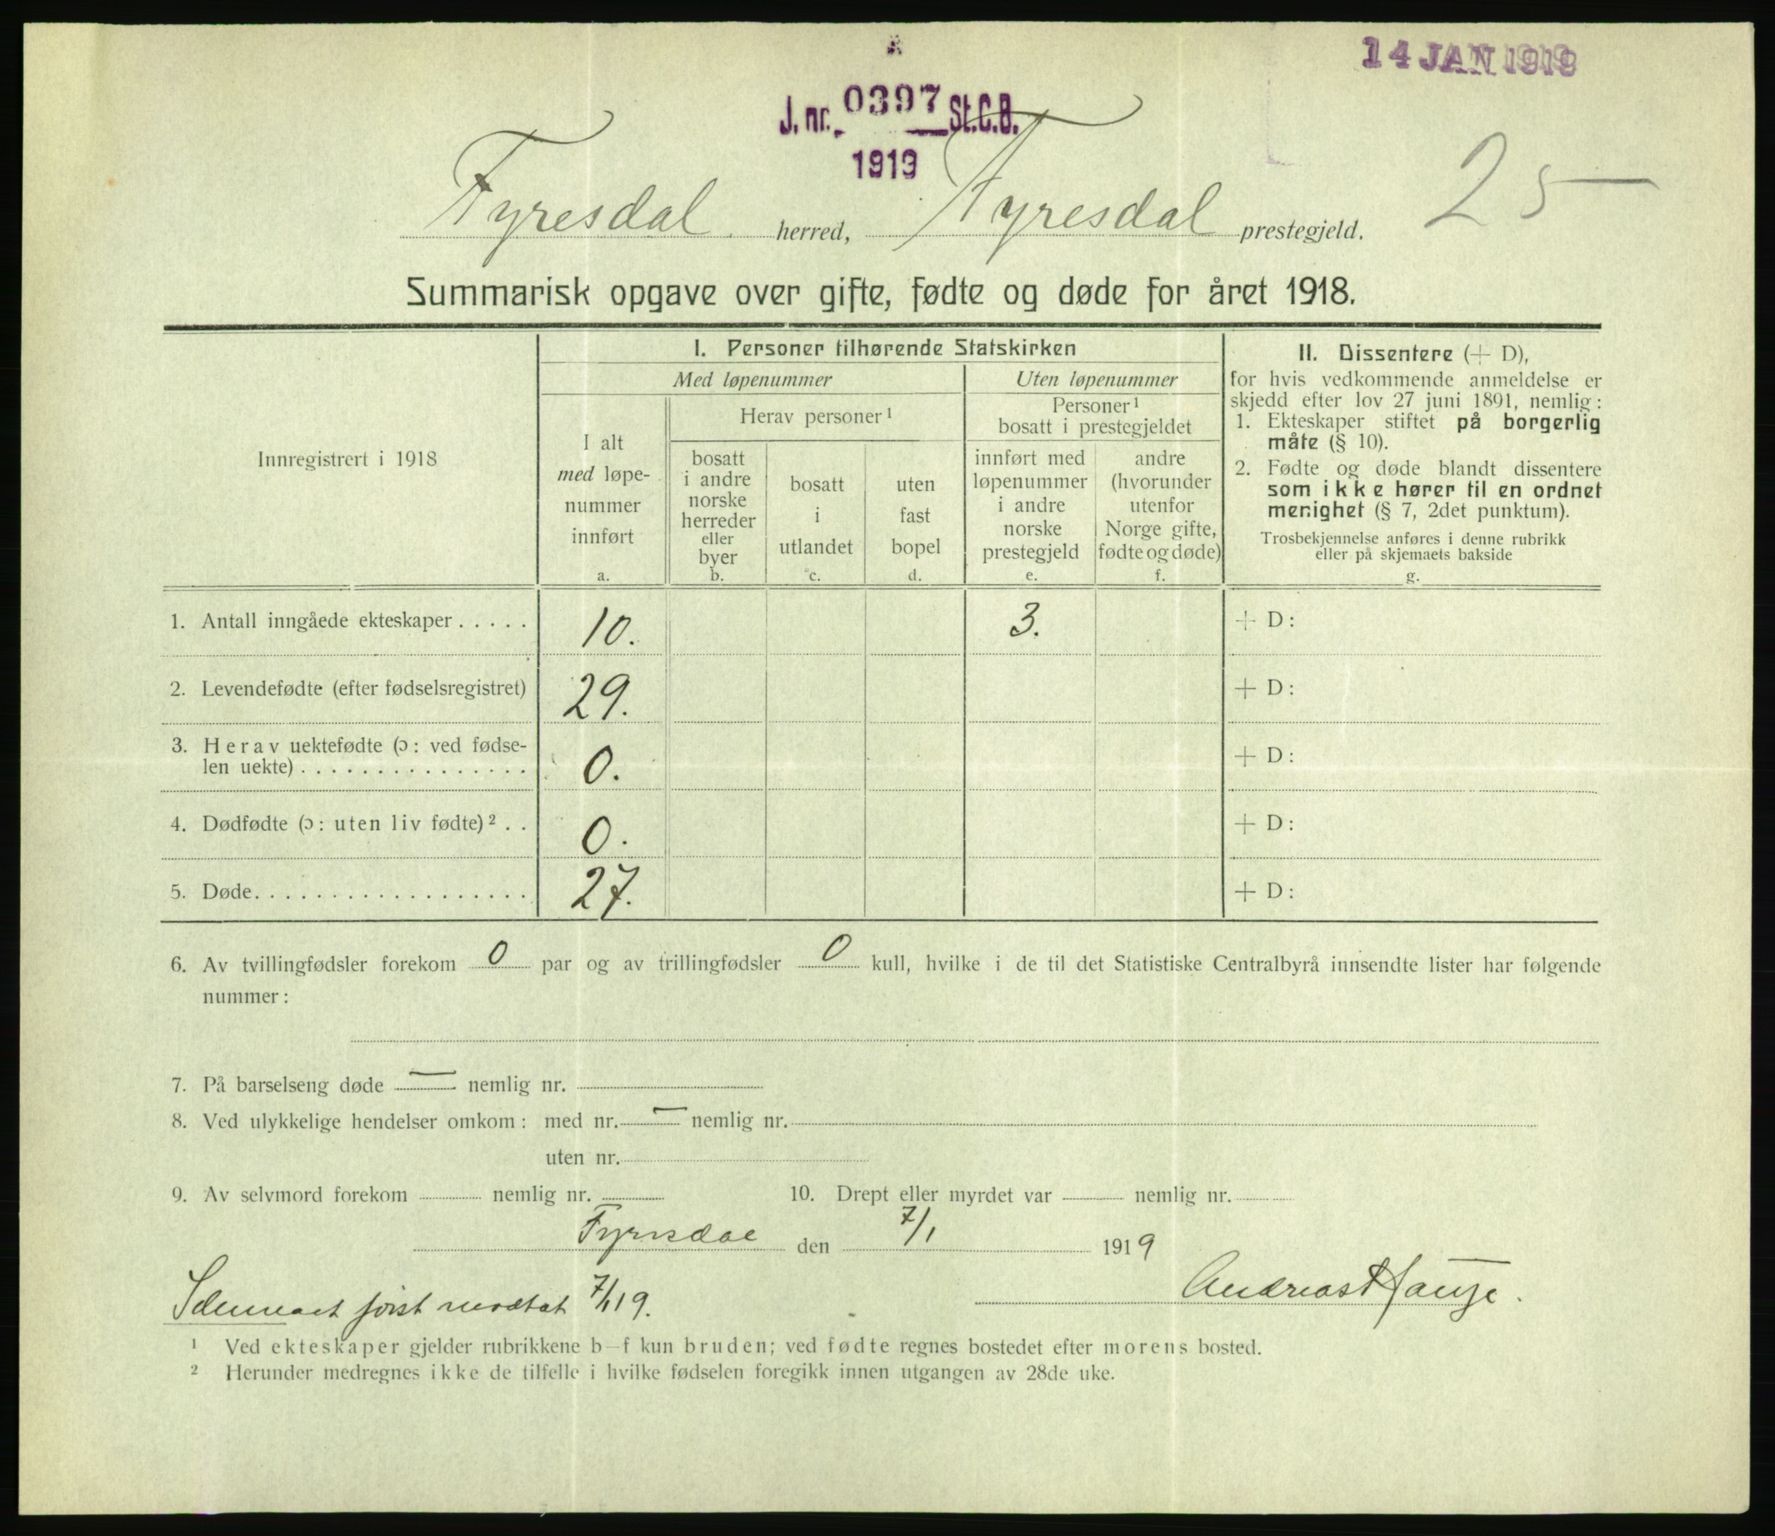 14 JAN 1919
J. nr. 0397 St.C.B.
1919
25
Fyresdal herred, Fyresdal prestegjeld.
Summarisk opgave over gifte, fødte og døde for året 1918.
Innregistrert i 1918
I. Personer tilhørende Statskirken
Med løpenummer
Uten løpenummer
I alt
med løpe-
nummer
innført
a.
Herav personer ¹
bosatt
i andre
norske
herreder
eller
byer
b.
bosatt
i
utlandet
c.
uten
fast
bopel
d.
Personer ¹
bosatt i prestegjeldet
innført med
løpenummer
i andre
norske
prestegjeld
e.
andre
(hvorunder
utenfor
Norge gifte,
fødte og døde)
f.
II. Dissentere (+ D),
for hvis vedkommende anmeldelse er
skjedd efter lov 27 juni 1891, nemlig:
1. Ekteskaper stiftet på borgerlig
måte (§ 10).
2. Fødte og døde blandt dissentere
som ikke hører til en ordnet
menighet (§ 7, 2det punktum).
Trosbekjennelse anføres i denne rubrikk
eller på skjemaets bakside
g.
1. Antall inngåede ekteskaper . . . . . 10. 3. + D:
2. Levendefødte (efter fødselsregistret) 29. + D:
3. Herav uektefødte (ɔ: ved fødse-
len uekte) . . . . . . . . . . . . . . . 0. + D:
4. Dødfødte (ɔ: uten liv fødte) ² . . 0. + D:
5. Døde. . . . . . . . . . . . . . . . . . 27. + D:
6. Av tvillingfødsler forekom 0 par og av trillingfødsler 0 kull, hvilke i de til det Statistiske Centralbyrå innsendte lister har følgende
nummer:
7. På barselseng døde — nemlig nr.
8. Ved ulykkelige hendelser omkom: med nr. — nemlig nr.
uten nr.
9. Av selvmord forekom nemlig nr. 10. Drept eller myrdet var nemlig nr.
Fyresdal den 7/1 1919
Andreas Hauge.
først 7/1 19.
¹ Ved ekteskaper gjelder rubrikkene b–f kun bruden; ved fødte regnes bostedet efter morens bosted.
² Herunder medregnes ikke de tilfelle i hvilke fødselen foregikk innen utgangen av 28de uke.